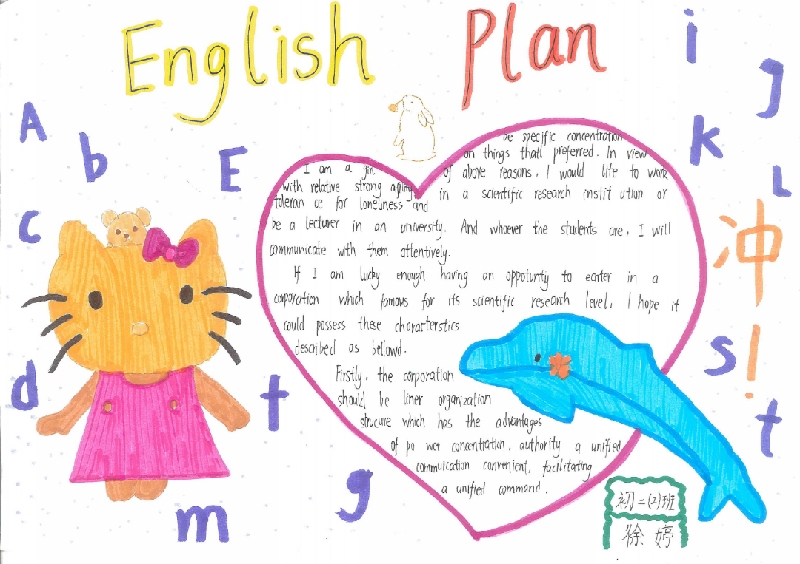 English Plan
i
J
A
b
k
E
L
c
冲!
I am a
with relative strong
for loneliness and
be specific concentration
on things thatI preferred. In view
of above reasons, I would like to work
in a scientific research institution or
be a lecturer in an university. And whoever the students are, I will
communicate with them attentively.
If I am lucky enough having an in a
corporation which famous for its scientific research level, I hope it
could possess these
described as
Firstly, the corporation
should be liner organization
which has the advantages
of po wer concentration, authority a unified
convenient, facilitating
a unified command.
s
d
t
t
g
m
初二(2)班
徐婷